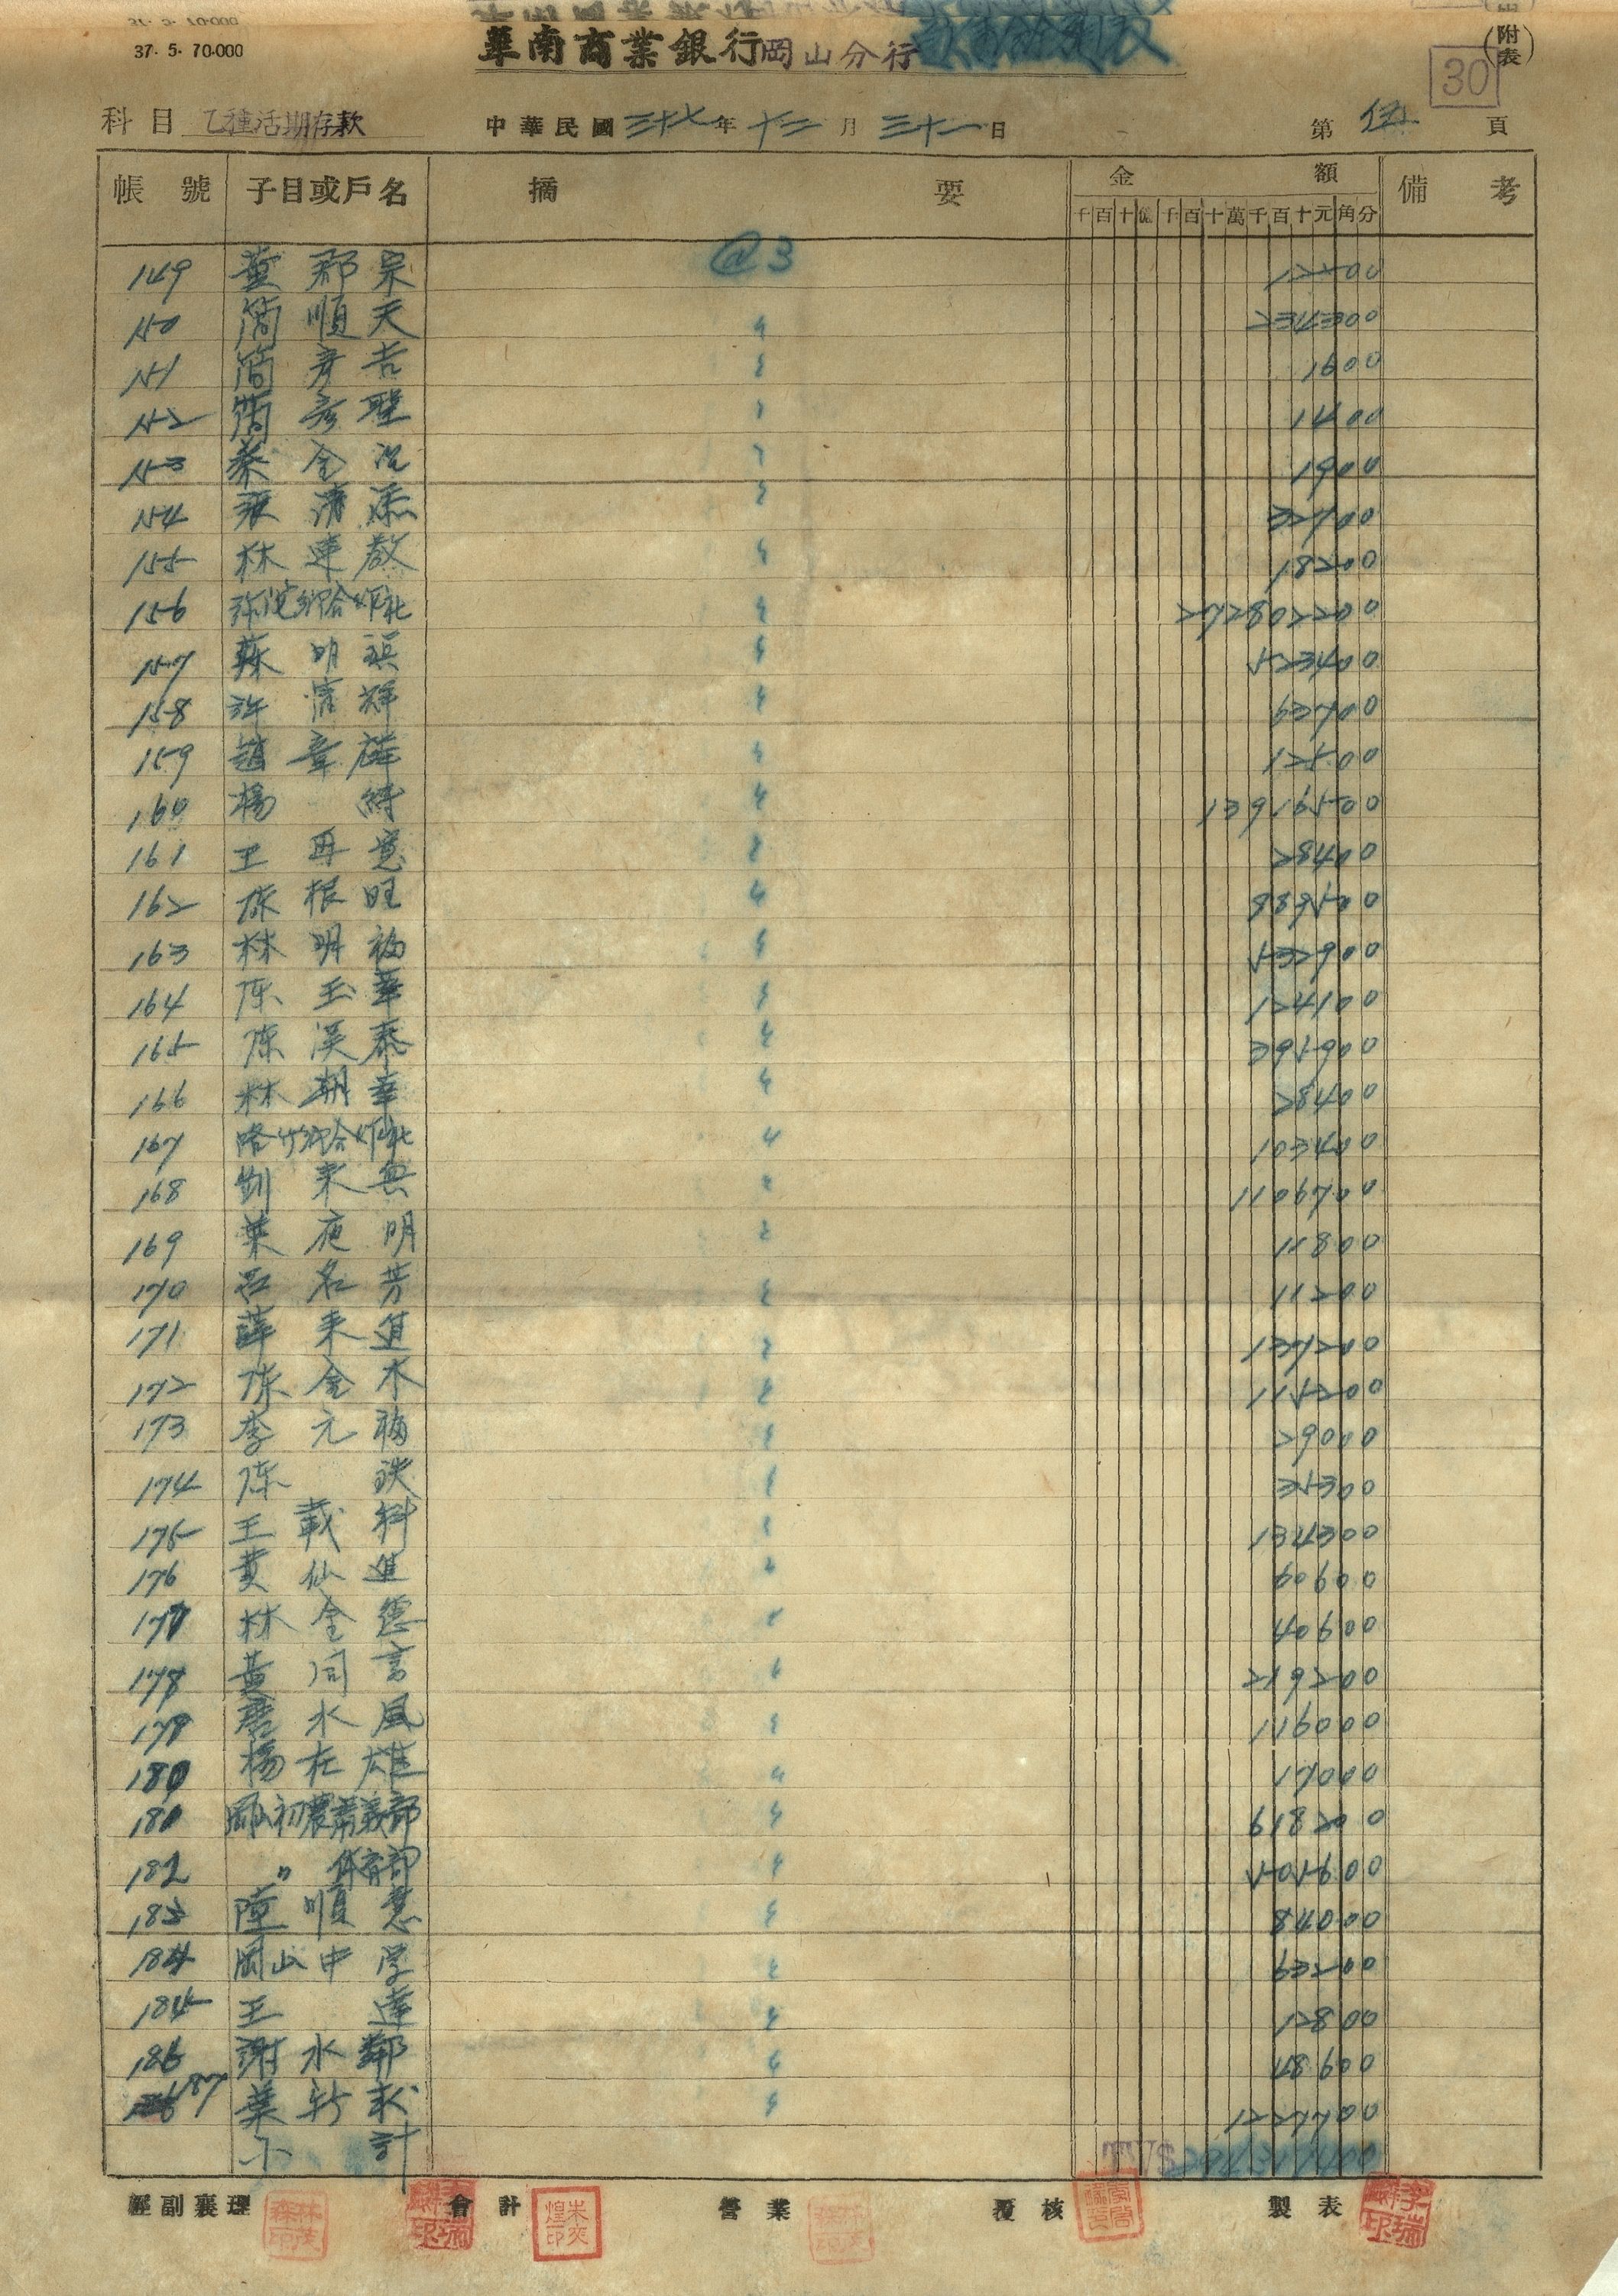 37. 5. 70.000
華南商業銀行岡山分行
(附表)
30
科目 乙種活期存款 中華民國三十七年十二月三十一日 第伍頁
帳號 子目或戶名 摘要 金額 備考
千百十億千百十萬千百十元角分
149 董郡宗 @3 12500
150 簡順天 2343300
151 簡彦吉 1600
152 簡彦聖 1400
153 蔡金 1900
154 張清添 32700
155 林連教 18200
156 弥陀鄉合作社
157 蘇明 523400
158 許信輝 63700
159 趙章 12500
160 楊 13916500
161 王再 28400
162 陳根旺 886500
163 林明福 532600
164 陳玉華 124100
165 陳溪泰 365600
166 林朝華 28400
167 路竹鄉合作社 103400
168 劉来無 1109700
169 葉庚明 11800
170 呂名芳 11200
171 薛来進 137200
172 陳金木 115200
173 李元福 29000
174 陳 35300
175 王載科 134300
176 黄仙進 60900
177 林全德 40900
178 黄同言 216200
179 唐水風 119000
180 楊在雄 17000
181 岡山初農 部 618200
182 〃 体育部 505600
183 陸順意 84000
184 岡山中学 63200
185 王達 12800
186 謝水鄰 78600
187 葉新 1227700
小計
TVS
經副襄理 會計 營業 覆核 製表